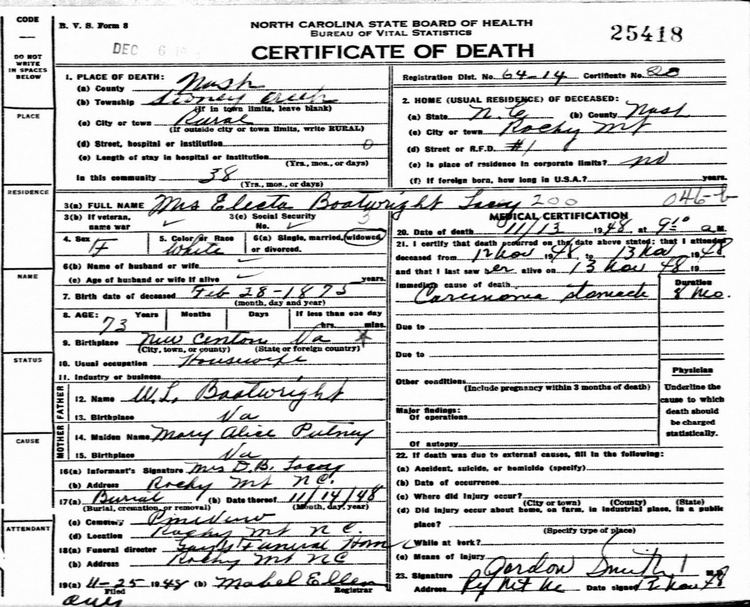 CODE
DO NOT
WRITE
IN SPACES
BELOW
PLACE
RESIDENCE
NAME
STATUS
CAUSE
ATTENDANT
B. V. S. Form 8
NORTH CAROLINA STATE BOARD OF HEALTH
BUREAU OF VITAL STATISTICS
DEC 6
25418
CERTIFICATE OF DEATH
1. PLACE OF DEATH:
(a) County Nash
(b) Township
(If in town limits, leave blank)
(c) City or town Rural
(If outside city or town limits, write RURAL)
(d) Street, hospital or institution 0
(e) Length of stay in hospital or institution
(Yrs., mos., or days)
In this community 38
(Yrs., mos., or days)
Registration Dist. No. 64-14 Certificate No. 20
2. HOME (USUAL RESIDENCE) OF DECEASED:
(a) State N.C. (b) County Nash
(c) City or town Rocky Mt
(d) Street or R.F.D. #1
(e) Is place of residence in corporate limits? no
(f) If foreign born, how long in U.S.A.? yrs.
3(a) FULL NAME Mrs Electa Boatwright Lacy 200
046-b
3(b) If veteran,
name war
3(c) Social Security
No.
3
4. Sex F
5. Color or Race
White
6(a) Single, married, widowed,
or divorced.
6(b) Name of husband or wife
6(c) Age of husband or wife if alive years.
7. Birth date of deceased Feb 28-1875
(month, day and year)
8. AGE: Years Months Days If less than one day
73 hrs. mins.
9. Birthplace New Canton Va
(City, town, or county) (State or foreign country)
10. Usual occupation Housewife
11. Industry or business
FATHER
12. Name W.L. Boatwright
13. Birthplace Va
MOTHER
14. Maiden Name Mary Alice Putney
15. Birthplace Va
16(a) Informant's Signature Mrs D.B. Lacy
(b) Address Rocky Mt NC.
17(a) Burial (b) Date thereof 11/14/48
(Burial, cremation, or removal) (Month, day, year)
(c) Cemetery Pineview
(d) Location Rocky Mt N C.
18(a) Funeral director Funeral Home
(b) Address Rocky Mt NC
19(a) 11-25 1948 (b) Mabel Ellen
Filed Registrar
MEDICAL CERTIFICATION
20. Date of death 11/13 1948 at 9:10 a.M.
21. I certify that death occurred on the date above stated; that I attended
deceased from 12 Nov 1948 to 13 Nov 1948
and that I last saw her alive on 13 Nov 48 19
Immediate cause of death
Carcinoma stomach
Duration
8 mo.
Due to
Due to
Other conditions
(Include pregnancy within 3 months of death)
Major findings:
Of operations
Of autopsy
Physician
Underline the
cause to which
death should
be charged
statistically.
22. If death was due to external causes, fill in the following:
(a) Accident, suicide, or homicide (specify)
(b) Date of occurrence
(c) Where did injury occur?
(City or town) (County) (State)
(d) Did injury occur about home, on farm, in industrial place, in a public
place?
(Specify type of place)
While at work?
(e) Means of injury
23. Signature Gordon Smith M.D.
Address Date signed Nov 48